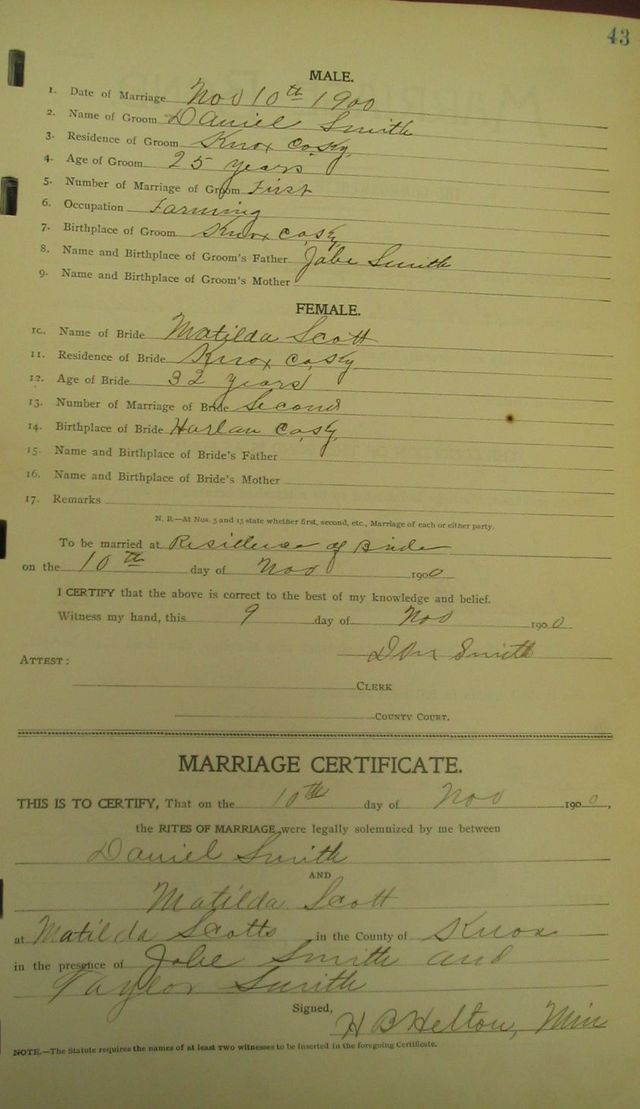 43
MALE.
1. Date of Marriage Nov 10th 1900
2. Name of Groom Daniel Smith
3. Residence of Groom Knox Co, Ky
4. Age of Groom 25 years
5. Number of Marriage of Groom First
6. Occupation Farming
7. Birthplace of Groom Knox Co, Ky
8. Name and Birthplace of Groom's Father Jobe Smith
9. Name and Birthplace of Groom's Mother
FEMALE.
10. Name of Bride Matilda Scott
11. Residence of Bride Knox Co, Ky
12. Age of Bride 32 years
13. Number of Marriage of Bride Second
14. Birthplace of Bride Harlan Co, Ky
15. Name and Birthplace of Bride's Father
16. Name and Birthplace of Bride's Mother
17. Remarks
N. B.—At Nos. 5 and 13 state whether first, second, etc., Marriage of each or either party.
To be married at Residence of Bride
on the 10th day of Nov 1900
I CERTIFY that the above is correct to the best of my knowledge and belief.
Witness my hand, this 9 day of Nov 1900
Smith
ATTEST:
CLERK
COUNTY COURT.
MARRIAGE CERTIFICATE.
THIS IS TO CERTIFY, That on the 10th day of Nov 1900,
the RITES OF MARRIAGE were legally solemnized by me between
Daniel Smith
AND
Matilda Scott
at Matilda Scotts in the County of Knox
in the presence of Jobe Smith and
Taylor Smith
Signed,
H B Helton, Min
NOTE.—The Statute requires the names of at least two witnesses to be inserted in the foregoing Certificate.